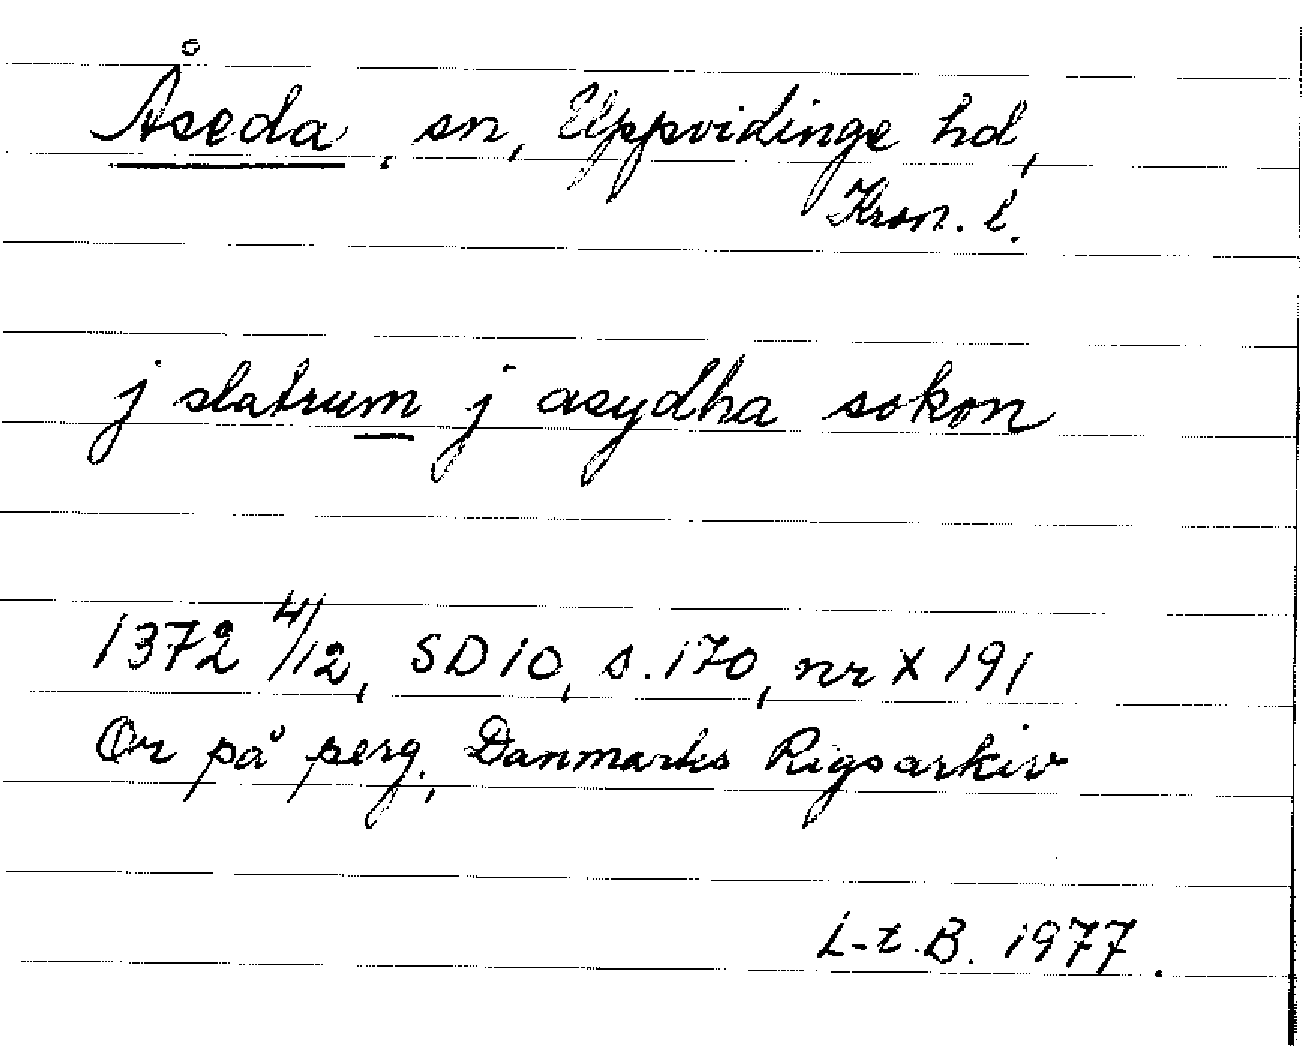 Åseda, sn, Uppvidinge hd,
Kron. l.
j slatrum j asydha sokon
1372 4/12, SD 10, s. 170, nr X 191
Or på perg., Danmarks Rigsarkiv
L-t. B. 1977.